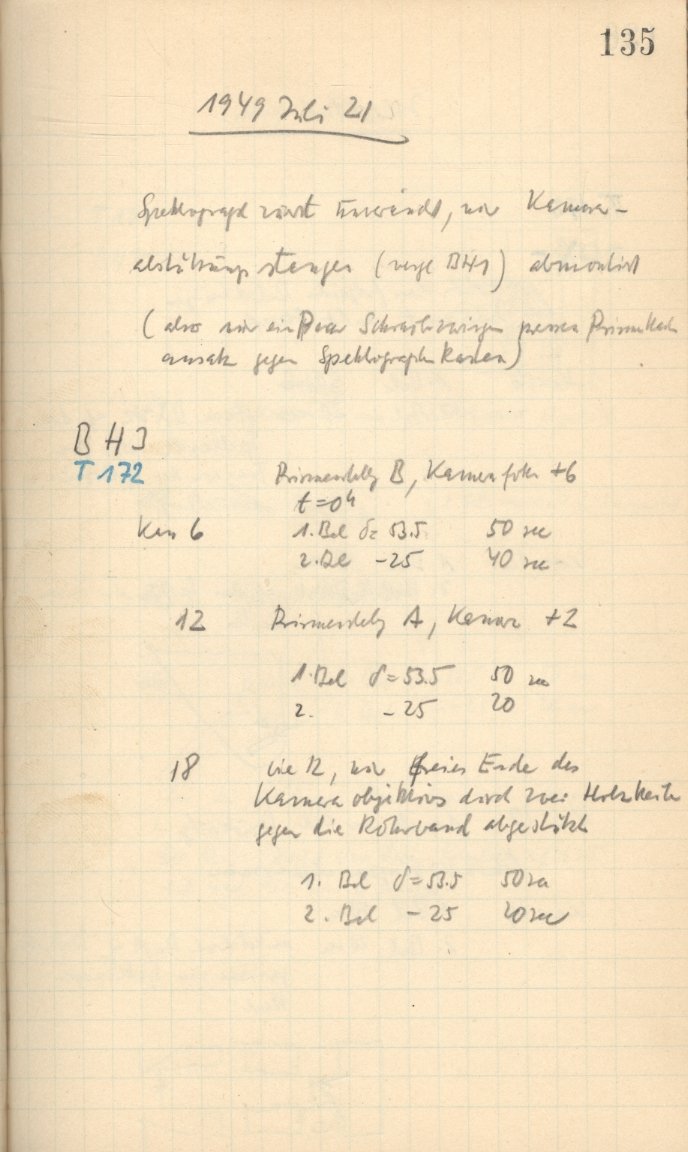 135
1949 Juli 21
Spektrograph sonst unverändert, nur Kamera-
abstützungsstangen (vergl BH1) abmontiert
(also nur ein Paar Schraubzwingen pressen Prismenkasten
ansatz gegen Spektrographenkasten)
BH3
T 172
Prismenstellg B, Kamerafokus +6
t=04
Kass 6 1. Bel δ= 53.5 50 sec
2. Bel -25 40 sec
12 Prismenstellg A, Kamera +2
1. Bel δ=53.5 50 sec
2. -25 20
18 wie 12, nur freies Ende des
Kameraobjektivs durch zwei Holzkeile
gegen die Rohrwand abgestützt
1. Bel δ=53.5 50 sec
2. Bel -25 20 sec